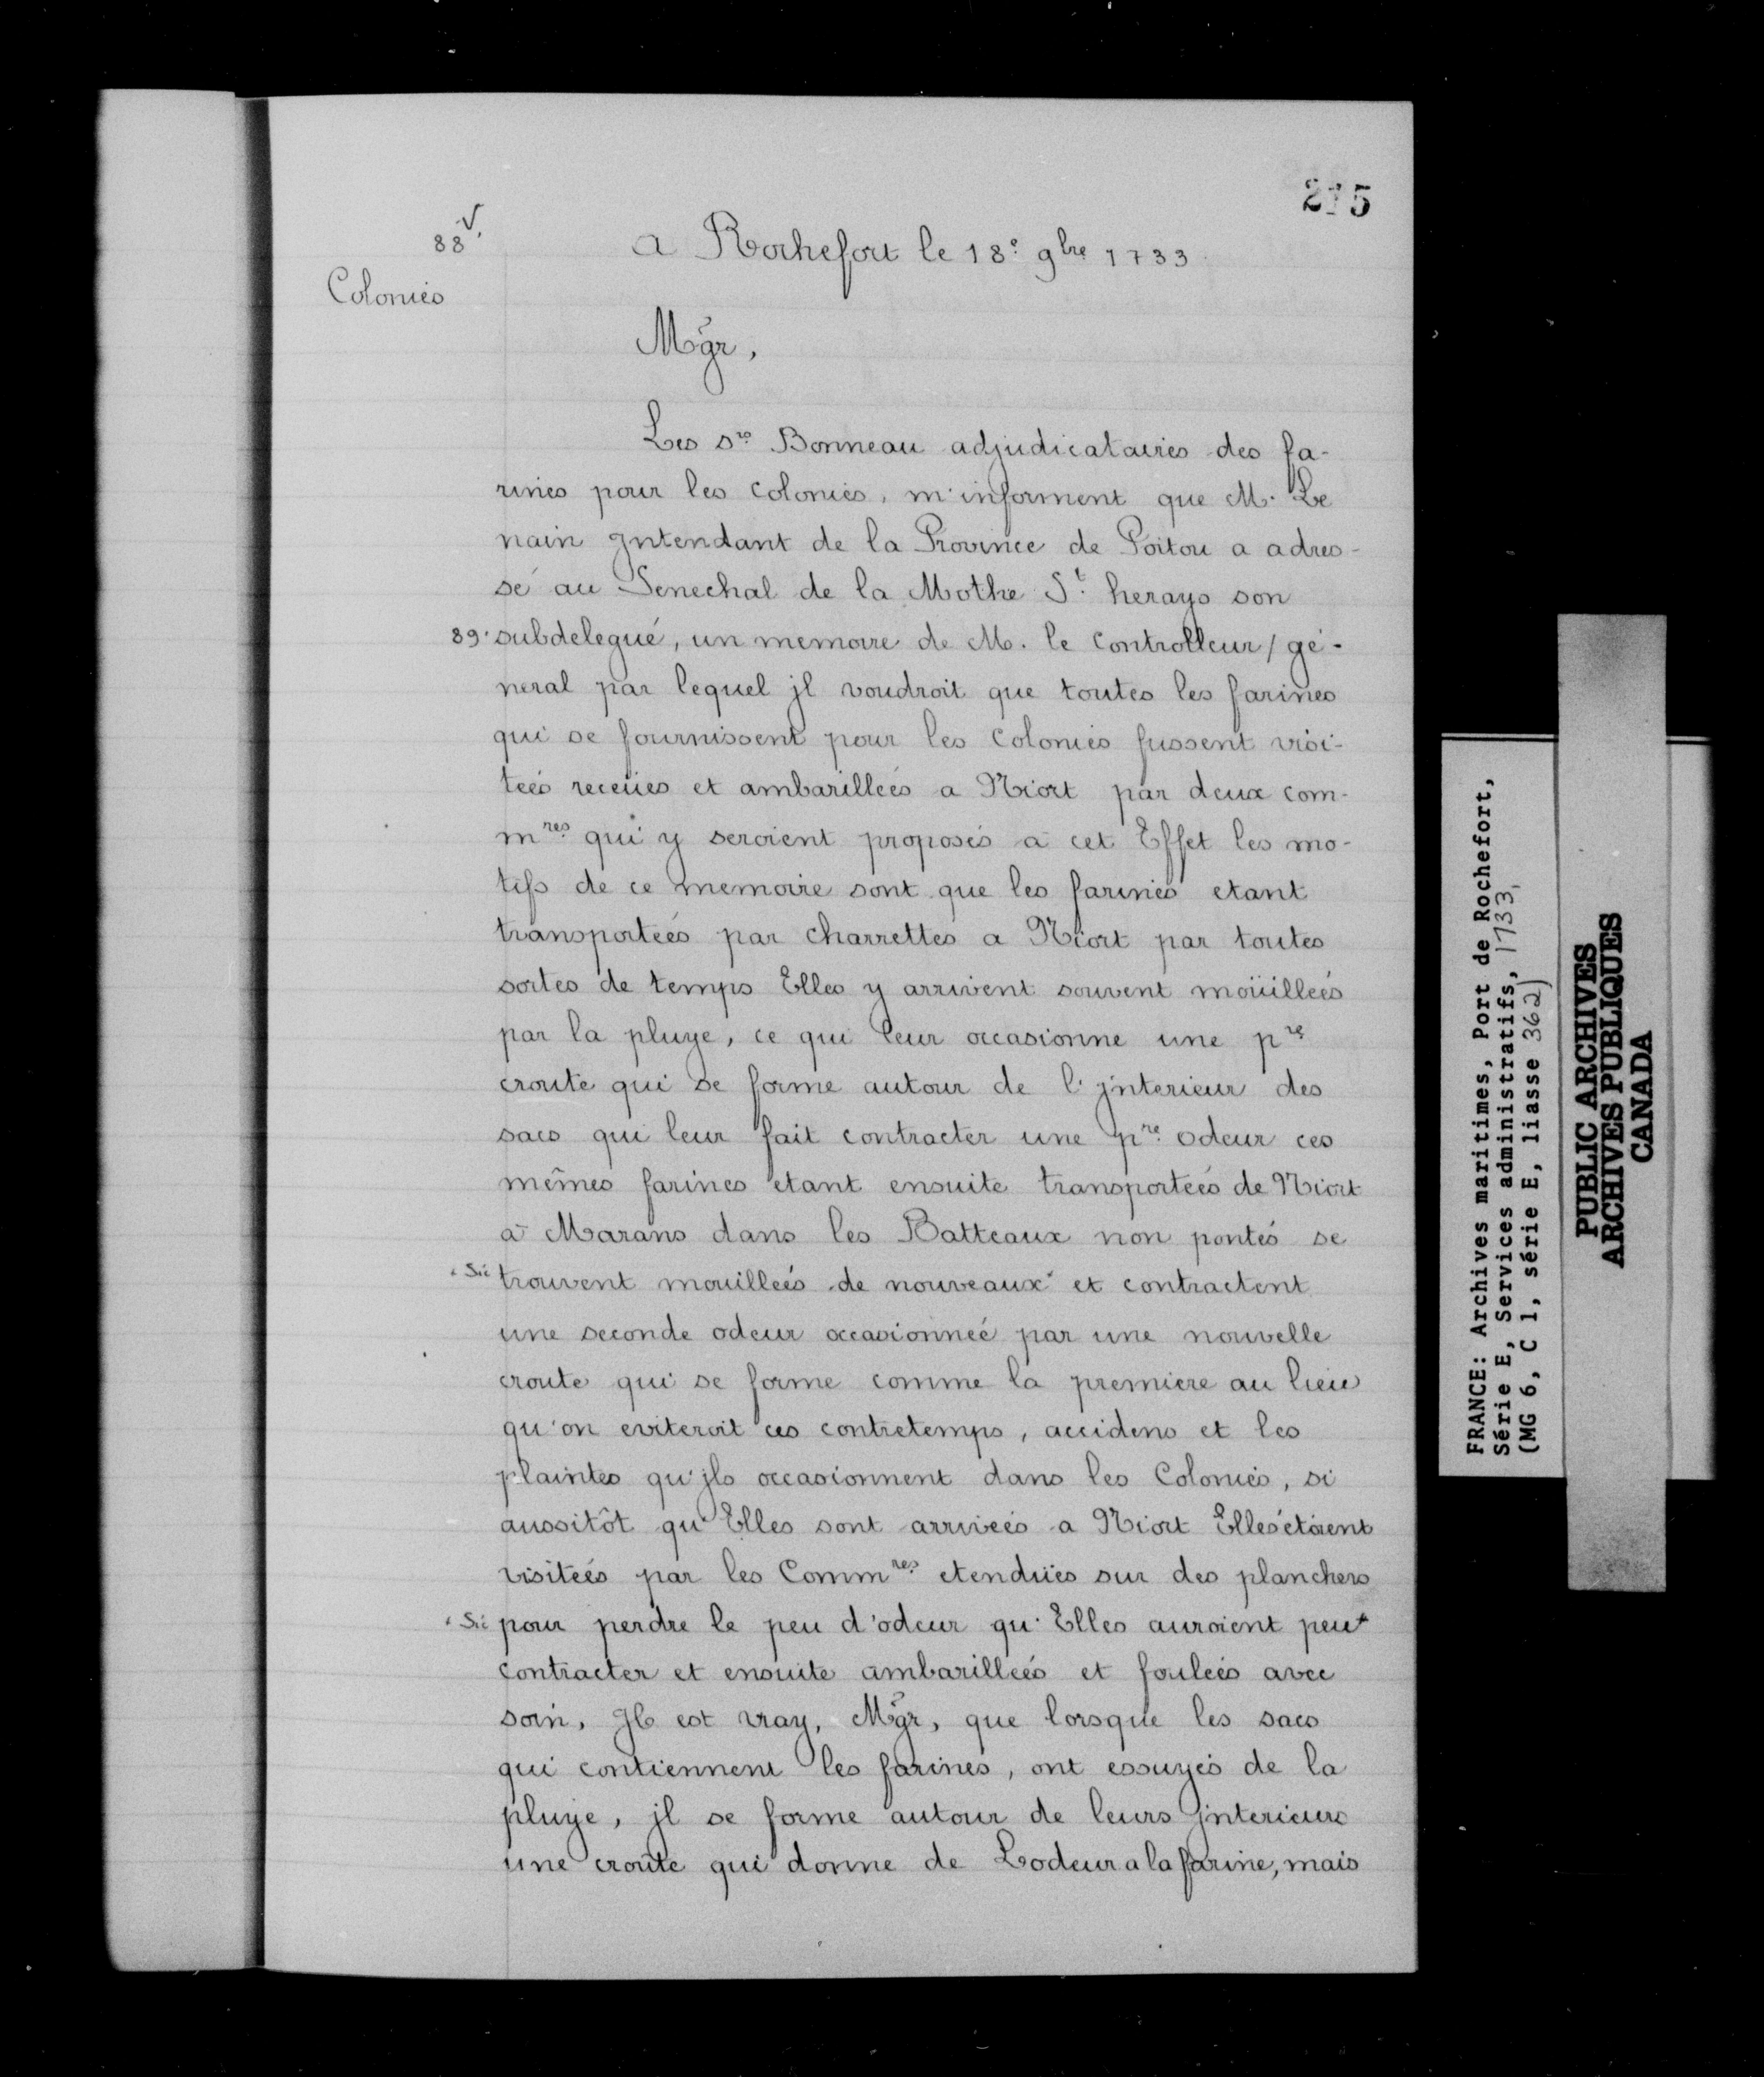 215
88 v.
a Rochefort le 18e. 9bre 1733
Colonies
Mgr,
Les srs Bonneau adjudicataires des fa-
rines pour les colonies, m'informent que M. Le
nain Jntendant de la Province de Poitou a adres-
sé au Senechal de la Mothe St. herays son
89. subdelegué, un memoire de M. le Controlleur / gé-
neral par lequel jl voudroit que toutes les farines
qui se fournissent pour les Colonies fussent visi-
tées receües et ambarillées a Niort par deux com-
mres qui y seroient proposés a cet Effet les mo-
tifs de ce memoire sont que les farines etant
transportées par charrettes a Niort par toutes
sortes de temps Elles y arrivent souvent moüillées
par la pluye, ce qui leur occasionne une pre
croute qui se forme autour de l'jnterieur des
sacs qui leur fait contracter une pre odeur ces
mêmes farines etant ensuite transportées de Niort
à Marans dans les Batteaux non pontés se
* Sic trouvent mouillées de nouveaux* et contractent
une seconde odeur occasionnée par une nouvelle
croute qui se forme comme la premiere au lieu
qu'on eviteroit ces contretemps, accidens et les
plaintes qu'jls occasionnent dans les Colonies, si
aussitôt qu'Elles sont arrivées a Niort Elles étoient
visitées par les Commres etendües sur des planchers
* Sic pour perdre le peu d'odeur qu'Elles auroient peu*
contracter et ensuite ambarillées et foulées avec
soin, Jl est vray, Mgr, que lorsque les sacs
qui contiennent les farines, ont essuyés de la
pluye, jl se forme autour de leurs jnterieurs
une croûte qui donne de Lodeur a la farine, mais
FRANCE: Archives maritimes, Port de Rochefort,
Série E, Services administratifs, 1733,
(MG 6, C 1, série E, liasse 362)
PUBLIC ARCHIVES
ARCHIVES PUBLIQUES
CANADA